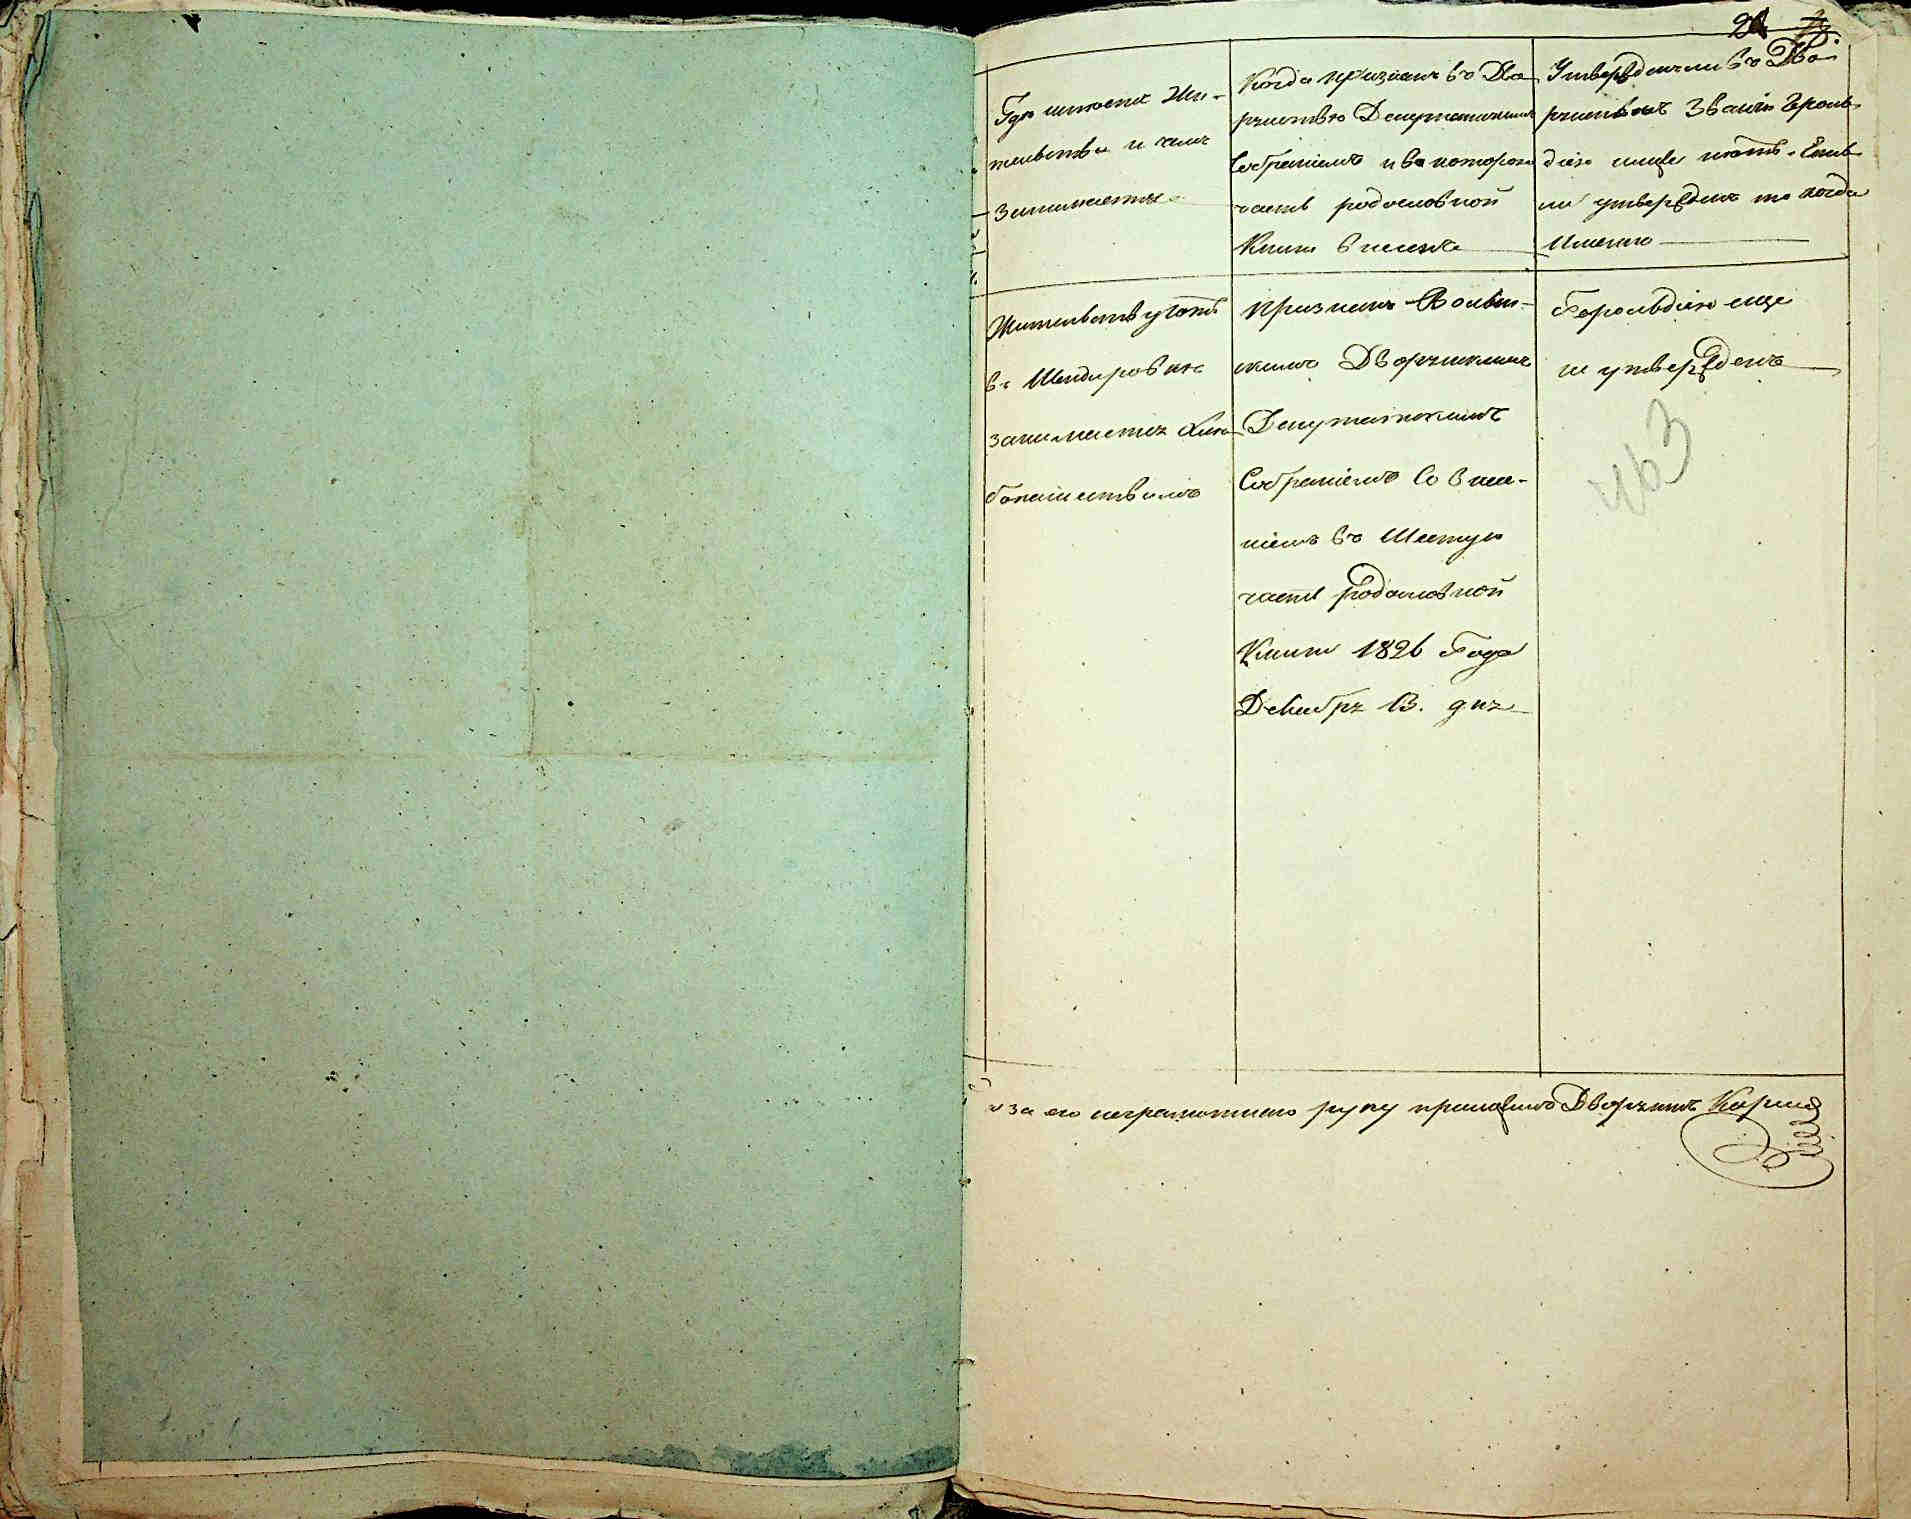 Где имеетъ Жи-
тельство и чемъ
занимается
Когда признанъ въ Дво
рянствѣ Депутатскимъ
Собраніемъ и въ которою
часть родословной
Книги внесенъ
Утвержденъ ли въ Дво
рянскомъ Званіи Героль
діею или нѣтъ. Есть
ли утвержденъ то когда
Именно
Жительствуетъ
въ
занимается Хлѣ
бопашествомъ
Признанъ Волын-
скимъ Дворянскимъ
Депутатскимъ
Собраніемъ Со внесе-
ніемъ въ Шестую
часть родословной
Книги 1826 Года
Декабря 13. дня
Герольдіею еще
не утвержденъ
463
за его неграмотнаго руку приложилъ Дворянинъ